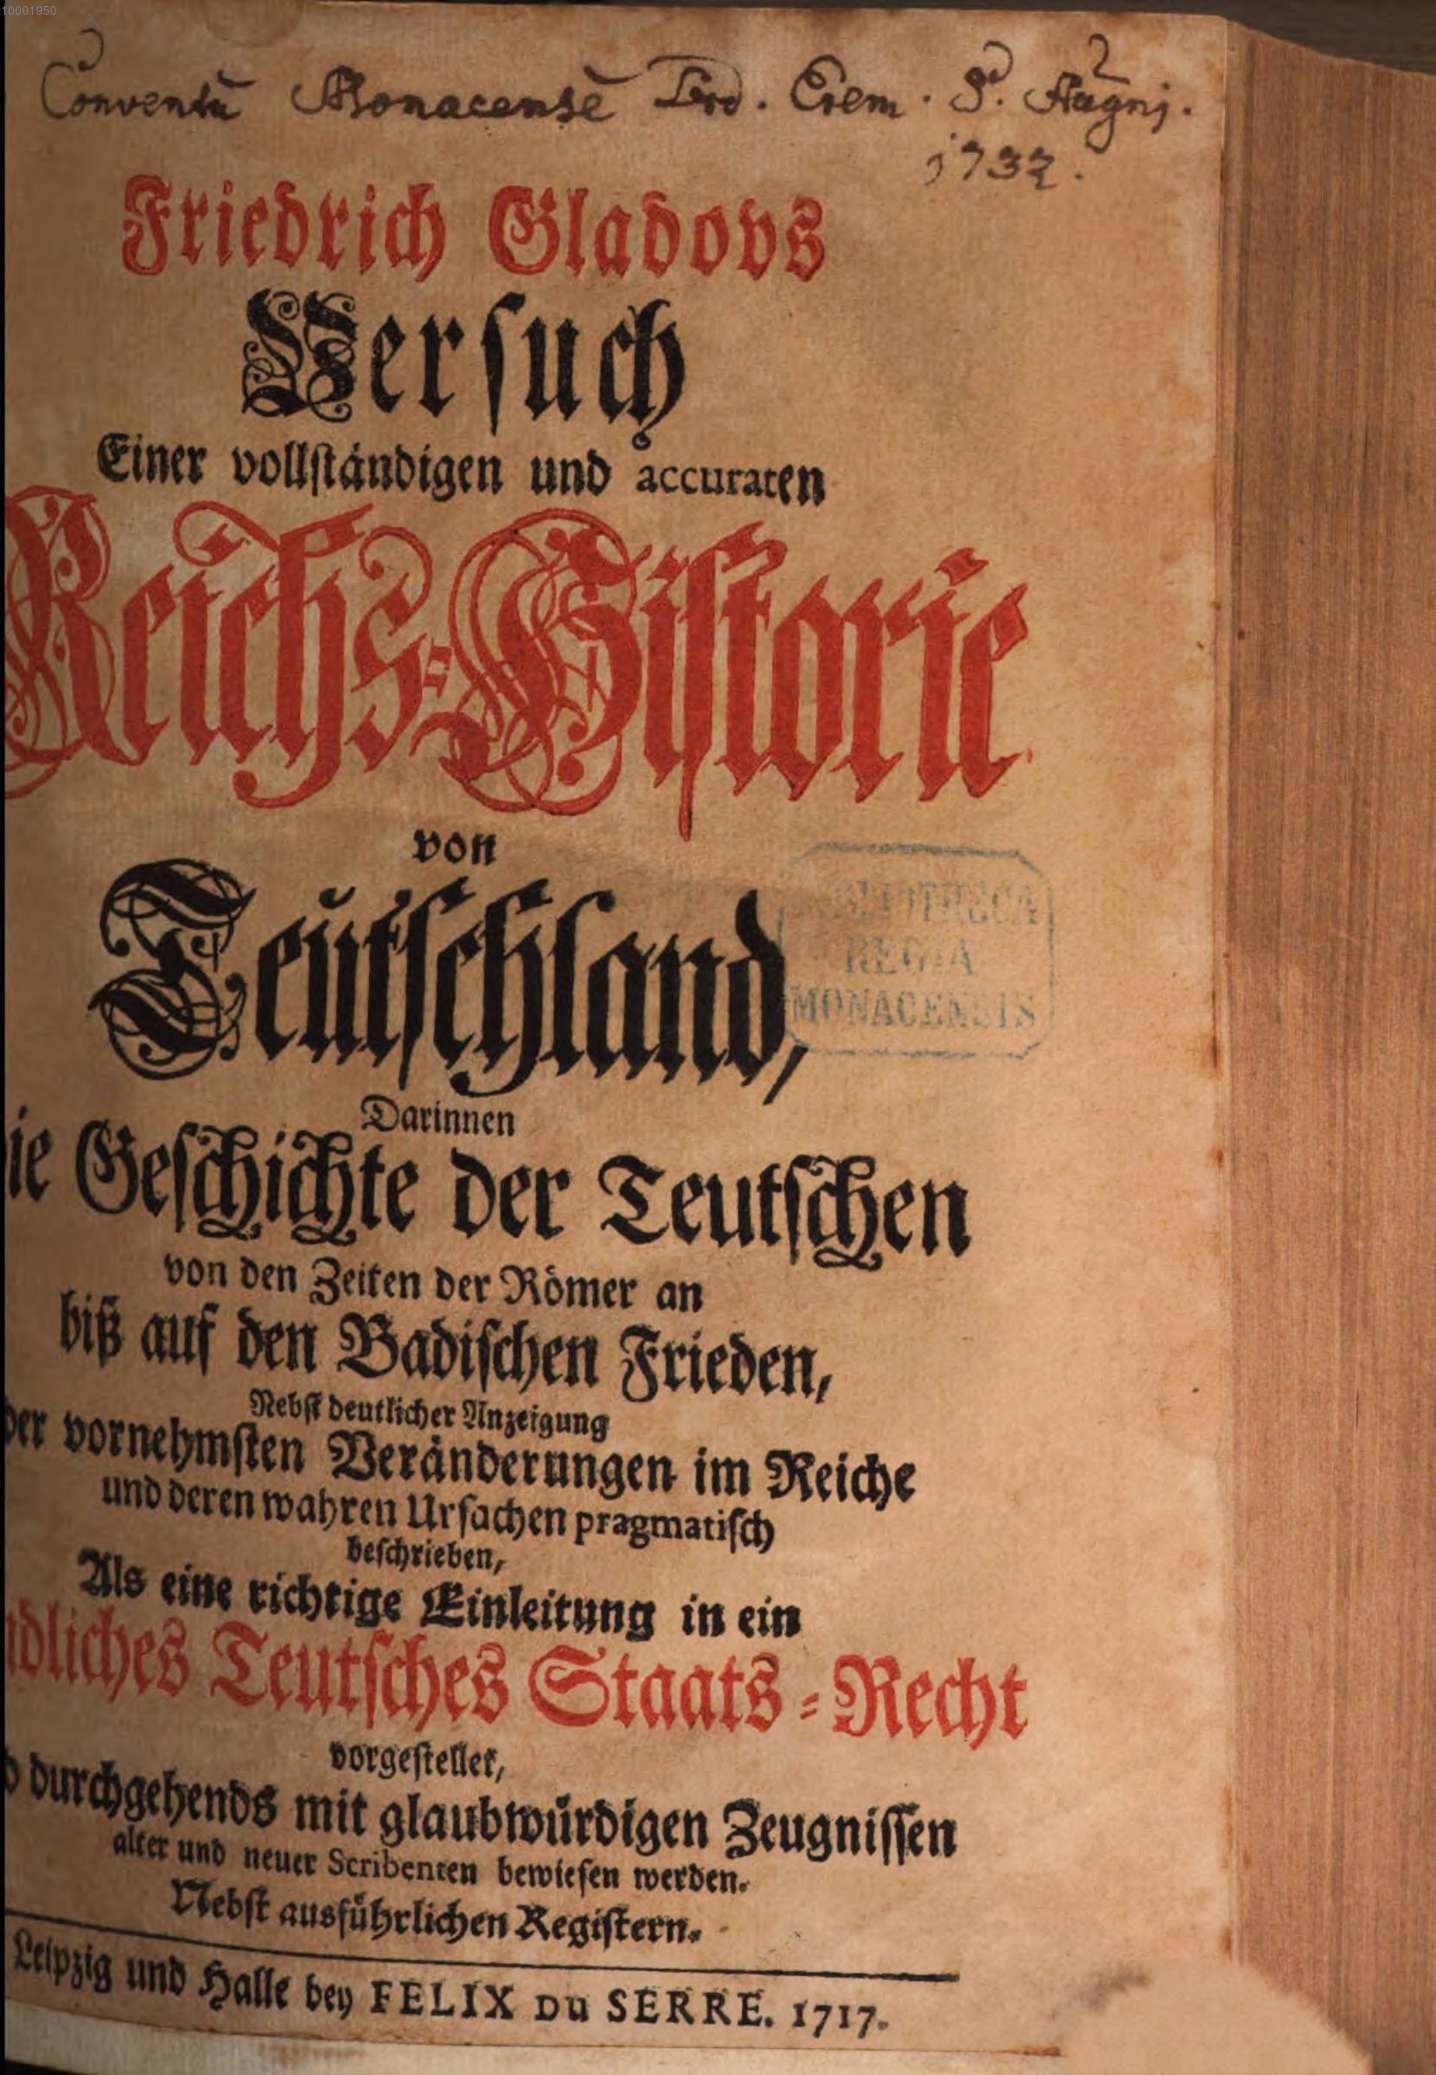 10001950
Conventū Monacensē Ord. Erem. S. P. Augnj.
1732.
Friedrich Gladovs
Versuch
Einer vollständigen und accuraten
Reichs-Historie
von
Teutschland,
Darinnen
ie Geschichte der Teutschen
von den Zeiten der Römer an
biß auf den Badischen Frieden,
Nebst deutlicher Anzeigung
der vornehmsten Veränderungen im Reiche
und deren wahren Ursachen pragmatisch
beschrieben,
Als eine richtige Einleitung in ein
ndliches Teutsches Staats-Recht
vorgestellet,
d durchgehends mit glaubwürdigen Zeugnissen
alter und neuer Scribenten bewiesen werden.
Nebst ausführlichen Registern.
Leipzig und Halle bey FELIX DU SERRE. 1717.
BIBLIOTHECA
REGIA
MONACENSIS